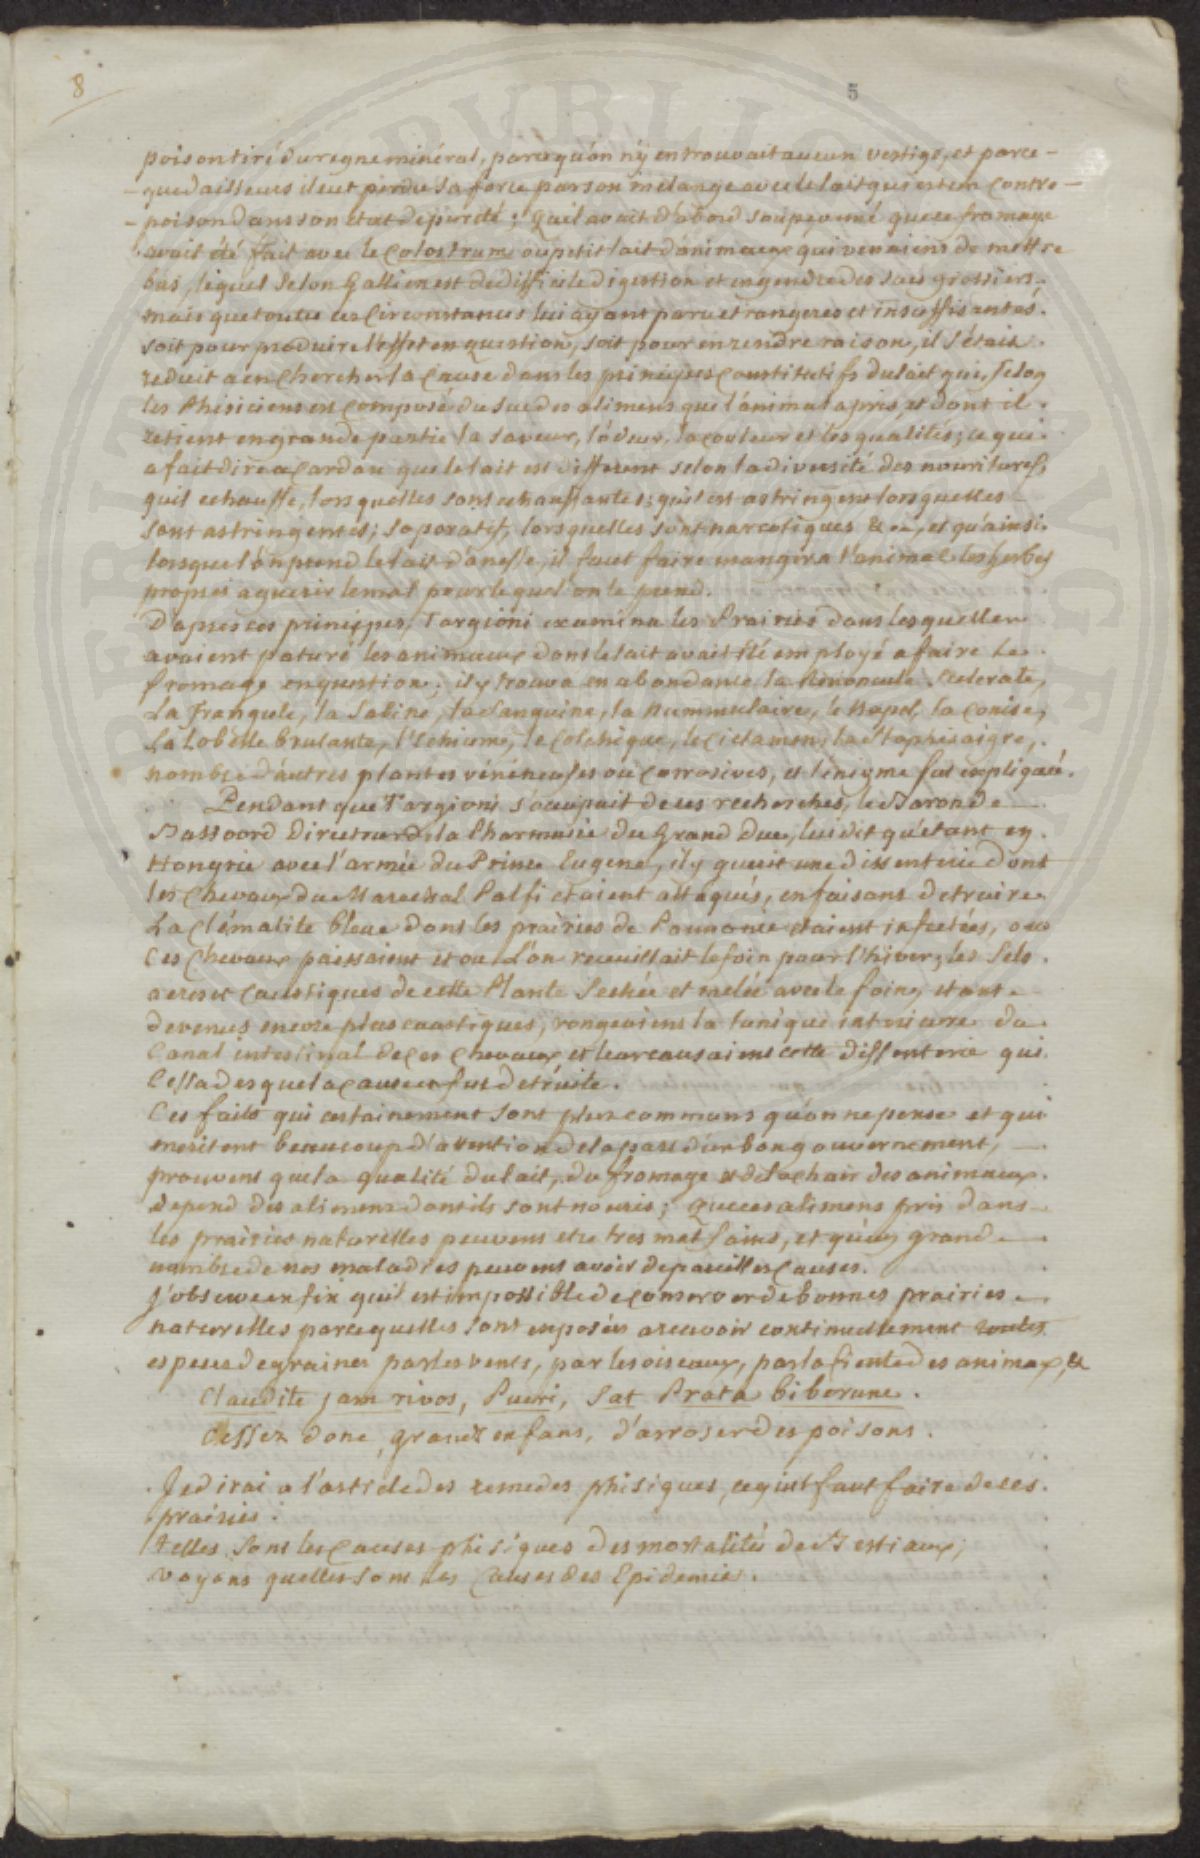 8
5
poison tiré du regne minéral, parcequ'on n'y en trouvait aucun vestige, et parce-
-que d'ailleurs il eut perdu sa force par son mélange avec le lait qui est un contre-
-poison dans son etat de pureté; qu'il avait d'abord soupçonné que ce fromage
avait été fait avec le Colostrum ou petit lait d'animaux qui venaient de mettre
bas, lequel selon Gallien est de difficile digestion et engendre des sucs grossiers-
mais que toutes ces Circonstances lui ayant paru etrangeres et insuffisantes.
soit pour produire l'effet en question, soit pour en rendre raison, il s'était.
reduit a en Chercher la Cause dans les principes Constitutifs du lait qui, selon
les Phisiciens est composé du suc des alimens que l'animal a pris, et dont il.
retient en grande partie la saveur, l'odeur, la couleur et les qualités; ce qui.
a fait dire a Cardan que le lait est different selon la diversité des nouritures,
qu'il echauffe, lorsquelles sont echauffantes; qu'il est astringent lorsquelles
sont astringentes; soporatif, lorsquelles sont narcotiques & ca, et qu'ainsi.
lorsque l'on prend le lait d'anesse, il faut faire manger a l'animal les herbes
propres a guerir le mal pour lequel on le prend.
D'apres ces principes, Targioni examina les Prairies dans lesquelles
avaient paturé les animaux dont le lait avait été employé a faire le.
fromage en question; il y trouva en abondance la Renoncule Scelerate,
La frangule, la Sabine, la Sanguine, la Nummulaire, le Napel, la Conise,
La Lobelle brulante, l'Echium, le Colchique, le Ciclamen, la Staphisaigre,.
nombre d'autres plantes vénéneuses ou Corrosives, et l'enigme fut expliqué.
Pendant que Targioni s'occupait de ces recherches, le Baron de
Bassoord Directeur de la Pharmacie du Grand Duc, lui dit qu'etant en
Hongrie avec l'armée du Prince Eugene, il y guerit une dissenterie dont
les Chevaux du Marechal Palfi etaient attaqués, en faisant detruire
La Clématite bleue dont les prairies de Pannonie etaient infectées, ou
Ces Chevaux paissaient et ou L'on recueillait le foin pour l'hiver; les Sels.
acres et Caustiques de cette Plante Sechée et melée avec le foin, etant
devenus encore plus caustiques, rongeaient la tunique interieure du.
Canal intestinal de ces Chevaux et leur causaient cette dissenterie qui.
Cessa des que la cause en fut detruite.
Ces faits qui certainement sont plus communs qu'on ne pense et qui
meritent beaucoup d'attention de la part d'un bon gouvernement,
prouvent que la qualité du lait, du fromage et de la chair des animaux.
depend des alimens dont ils sont nouris; que ces alimens pris dans
les prairies naturelles peuvent etre tres mal sains, et qu'un grand
nombre de nos maladies peuvent avoir de pareilles causes.
J'observe enfin qu'il est impossible de conserver de bonnes prairies
naturelles parcequelles sont exposées a recevoir continuellement toutes
especes de graines par les vents, par les oiseaux, par la fiente des animax, &
Claudite jam rivos, Pueri, Sat Prata biberunt.
Cessez donc, enfans, d'arroser des poisons.
Je dirai a l'article des remedes phisiques, ce qu'il faut faire de ces.
prairies.
telles sont les Causes phisiques des mortalités de Bestiaux;
voyons quelles sont les Causes des Epidemies.